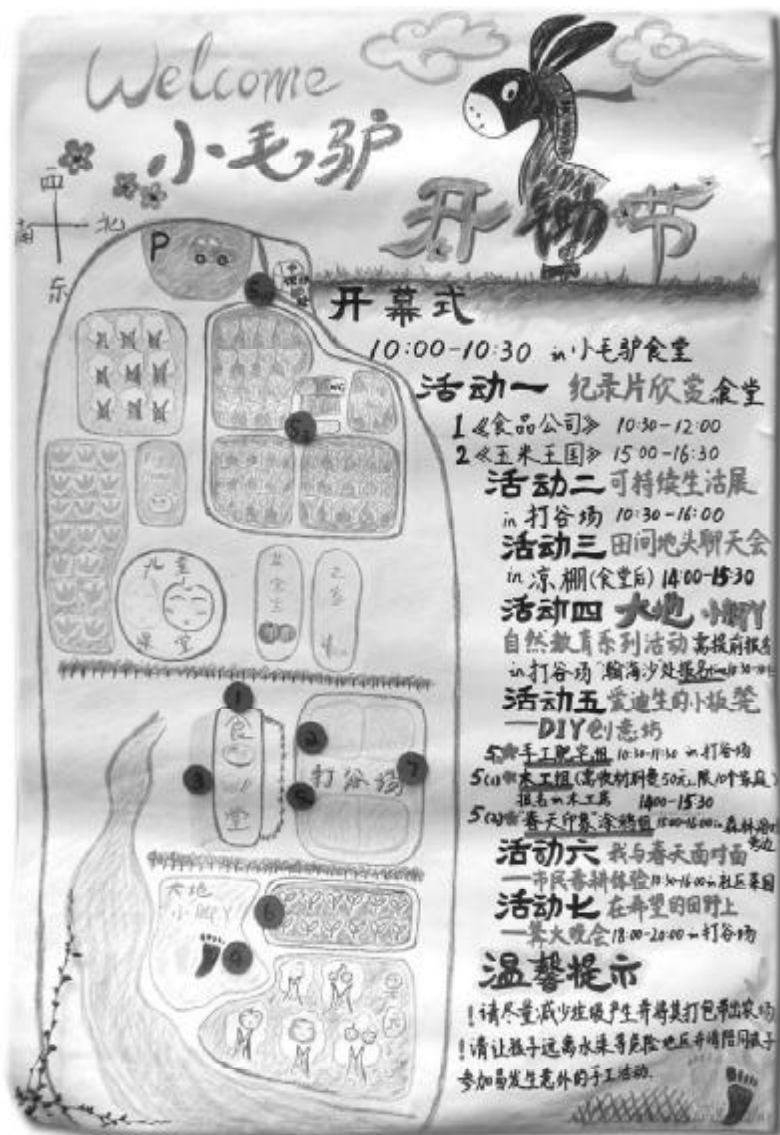 Welcome
小毛驴
开锄节
西
南
北
东
P
开幕式
10:00-10:30 in 小毛驴食堂
活动一 纪录片欣赏 食堂
1《食品公司》 10:30-12:00
2《玉米王国》 15:00-16:30
活动二 可持续生活展
in 打谷场 10:30-16:00
活动三 田间地头聊天会
in 凉棚(食堂后) 14:00-15:30
活动四 大地小脚丫
自然教育系列活动 需提前报名
in 打谷场 瀚海沙处报名
活动五 爱迪生的小板凳
——DIY创意坊
手工肥皂组 10:30-11:30 in 打谷场
5(1) 木工组(需收材料费50元,限10个家庭)
报名in木工房 14:00-15:30
5(2)"春天印象"涂鸦组 15:00-16:00 in
活动六 我与春天面对面
——市民春耕体验 10:30-16:00 in 社区菜园
活动七 在希望的田野上
——篝火晚会 18:00-20:00 in 打谷场
温馨提示
!请尽量减少垃圾产生并将其打包带出农场
!请让孩子远离水渠等危险地区并请陪同孩子
参加易发生意外的手工活动.
WC
5
儿童
食堂
1
2
3
打谷场
7
大地
小脚丫
6
果园